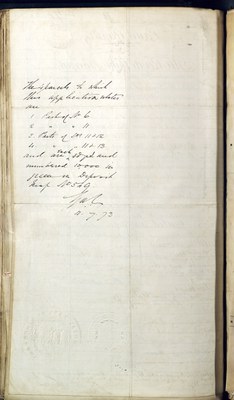 The parcels to which
this application relates
are
1 Part of No 6
2 " " 11
3 Parts of No 11 & 12
4 " " 11 & 13
and are each edged and
numbered in
green on Deposit
Map No 549